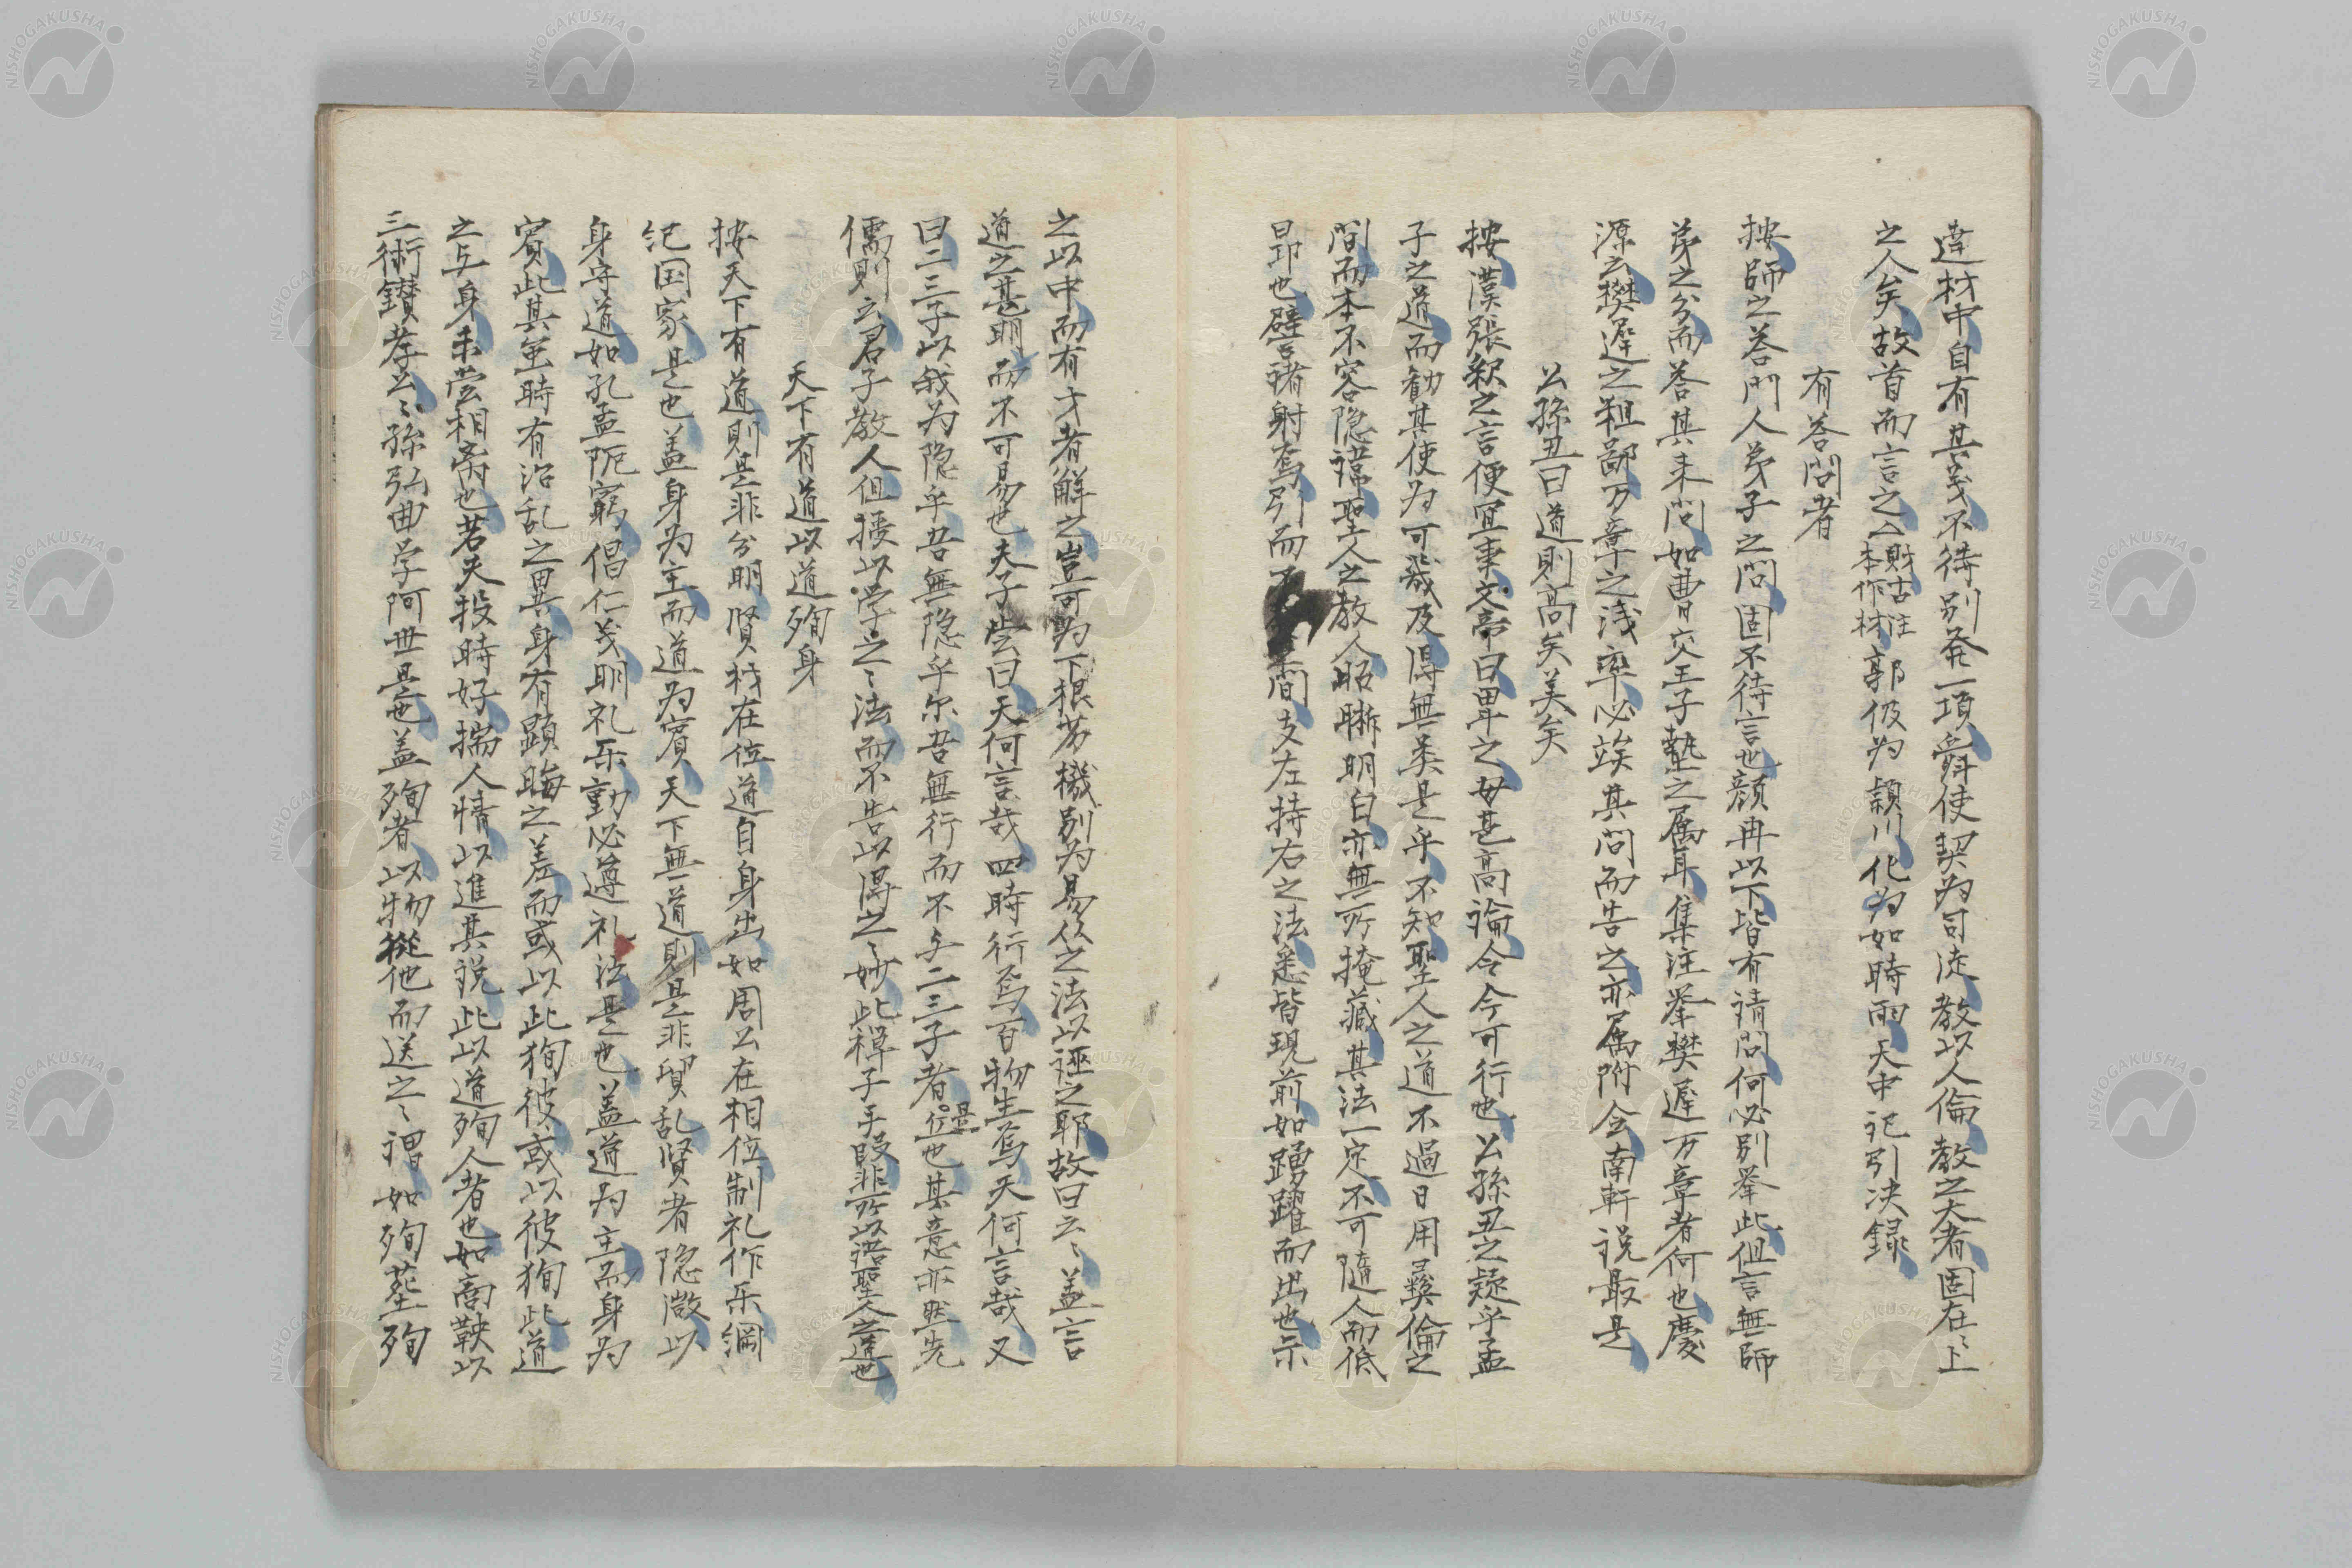 達材中自有其義不待別発一項舜使契為司徒教以人倫教之大者固在〻上
之人矣故首而言之 財古注本作材 郭伋为頴川化为如時雨天中記引决録
有荅問者
按師之荅門人弟子之問固不待言也顔冉以下皆有請問何必別挙此但言無師
弟之分而荅其来問如曹交王子墊之属耳集注挙樊遅万章者何也慶
源云樊遅之粗鄙万章之浅率必竢其問而告之亦属附会南軒説最是
公孫丑曰道則高矣美矣
按漢張釈之言便宜事文帝曰卑之毋甚高論令今可行也公孫丑之疑乎孟
子之道而勧其使为可幾及得無类是乎不知聖人之道不過日用彛倫之
間而本不容隐諱聖人之教人昭晰明白亦無所掩蔵其法一定不可随人而低
昻也譬諸射焉引而不間支左持右之法悉皆現前如踴躍而出也示
之以中而有才者解之豈可为下根劣機別为易从之法以誣之耶故曰云〻盖言
道之甚明而不可易也夫子尝曰天何言哉四時行焉百物生焉天何言哉又
曰二三子以我为隐乎吾無隐乎尔吾無行而不与二三子者是丘也其意亦然先
儒則云君子教人但授以学之〻法而不告以得之〻妙此禅子手段非所以語聖人之道也
天下有道以道殉身
按天下有道則是非分明賢材在位道自身出如周公在相位制礼作乐綱
紀国家是也盖身为主而道为賓天下無道則是非貿乱賢者隐微以
身守道如孔孟阨窮倡仁義明礼乐動必遵礼法是也盖道为主而身为
賓此其至時有治乱之異身有顕晦之差而或以此狥彼或以彼狥此道
之与身未尝相离也若夫投時好揣人情以進其説此以道殉人者也如商鞅以
三術鑚孝公〻孫弘曲学阿世是也盖殉者以物從他而送之〻謂如殉塟殉